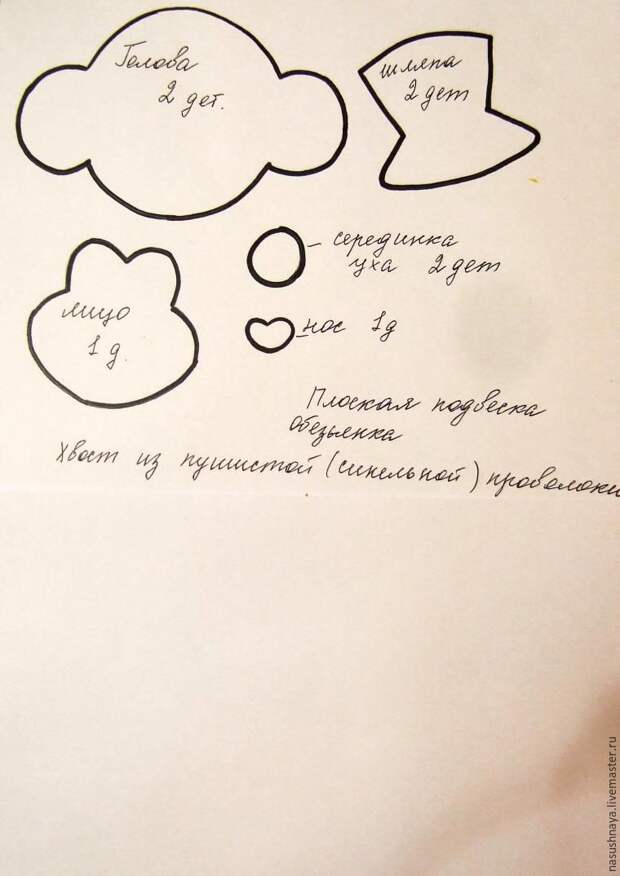 Голова
2 дет.
шляпа
2 дет
серединка
уха 2 дет
лицо
1 д.
нос 1д
Плоская подвеска
обезьянка
Хвост из пушистой (синельной) проволоки
nasushnaya.livemaster.ru